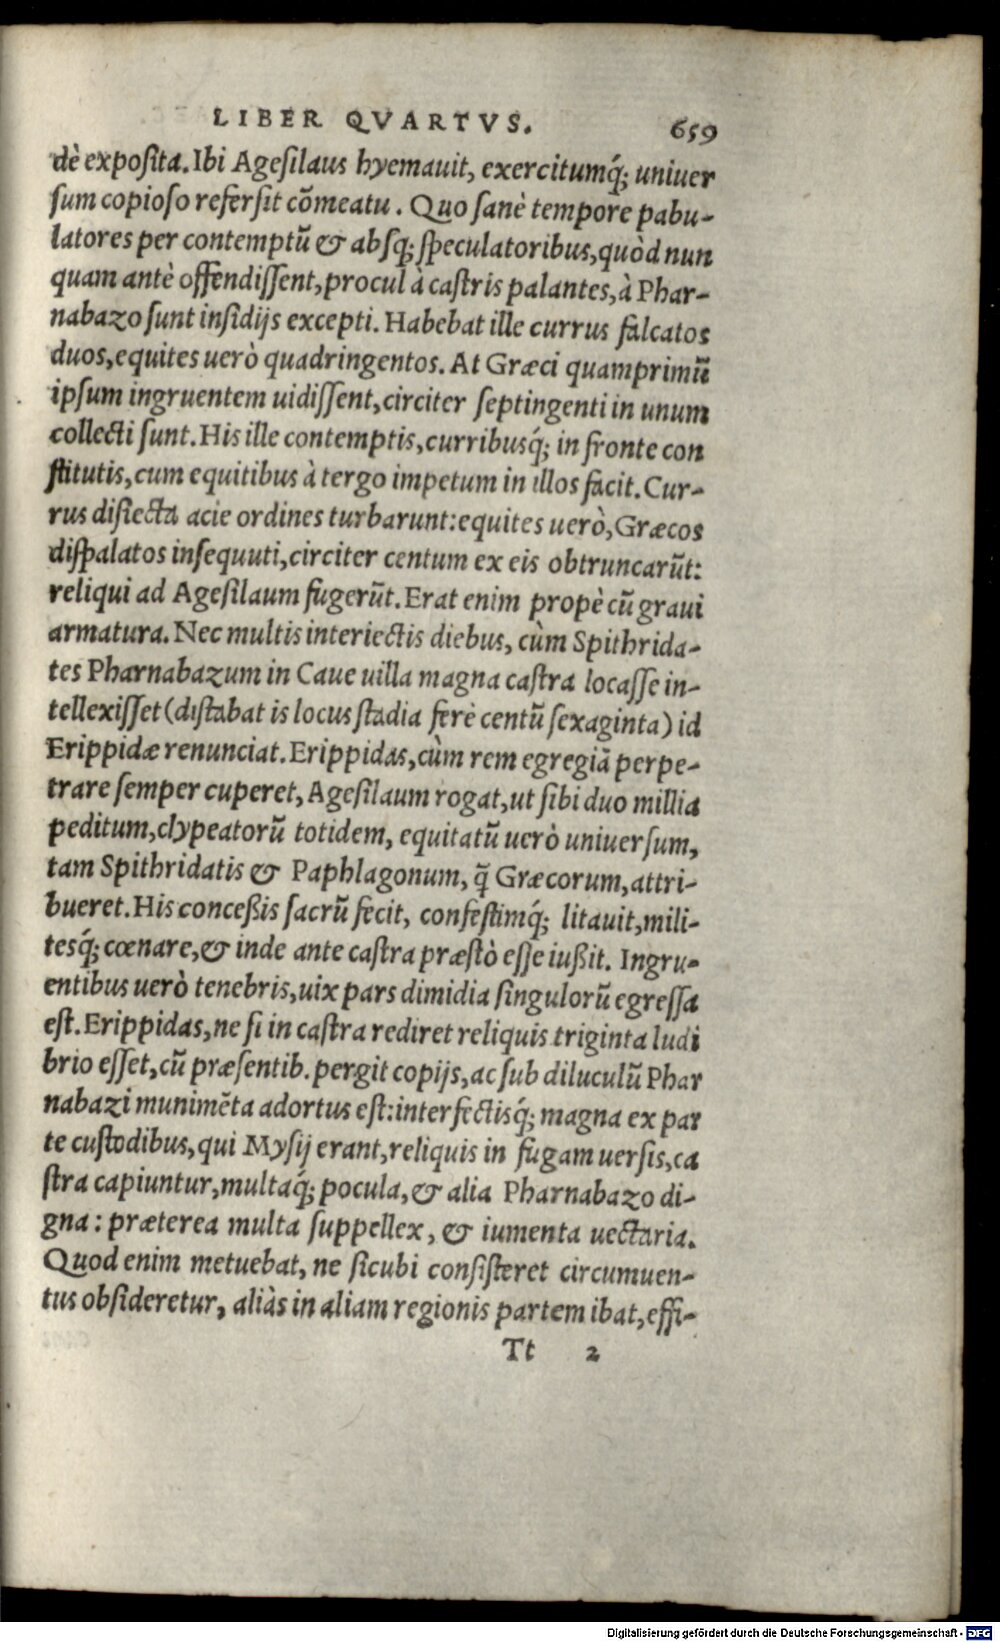 LIBER QVARTVS. 659
dè exposita. Ibi Agesilaus hyemauit, exercitumq́; uniuer
sum copioso refersit cōmeatu. Quo sanè tempore pabu-
latores per contemptū & absq; speculatoribus, quòd nun
quam antè offendissent, procul à castris palantes, à Phar-
nabazo sunt insidijs excepti. Habebat ille currus falcatos
duos, equites uerò quadringentos. At Græci quamprimū
ipsum ingruentem uidissent, circiter septingenti in unum
collecti sunt. His ille contemptis, curribusq́; in fronte con
stitutis, cum equitibus à tergo impetum in illos facit. Cur-
rus disiecta acie ordines turbarunt: equites uerò, Græcos
dispalatos insequuti, circiter centum ex eis obtruncarūt:
reliqui ad Agesilaum fugerūt. Erat enim propè cū graui
armatura. Nec multis interiectis diebus, cùm Spithrida-
tes Pharnabazum in Caue uilla magna castra locasse in-
tellexisset (distabat is locus stadia ferè centū sexaginta) id
Erippidæ renunciat. Erippidas, cùm rem egregiā perpe-
trare semper cuperet, Agesilaum rogat, ut sibi duo millia
peditum, clypeatorū totidem, equitatū uerò uniuersum,
tam Spithridatis & Paphlagonum, q̄ Græcorum, attri-
bueret. His conceßis sacrū fecit, confestimq́; litauit, mili-
tesq́; cœnare, & inde ante castra præstò esse iußit. Ingru-
entibus uerò tenebris, uix pars dimidia singulorū egressa
est. Erippidas, ne si in castra rediret reliquis triginta ludi
brio esset, cū præsentib. pergit copijs, ac sub diluculū Phar
nabazi munimēta adortus est: interfectisq́; magna ex par
te custodibus, qui Mysij erant, reliquis in fugam uersis, ca
stra capiuntur, multaq́; pocula, & alia Pharnabazo di-
gna: præterea multa suppellex, & iumenta uectaria.
Quod enim metuebat, ne sicubi consisteret circumuen-
tus obsideretur, aliàs in aliam regionis partem ibat, effi-
Tt 2
Digitalisierung gefördert durch die Deutsche Forschungsgemeinschaft - DFG